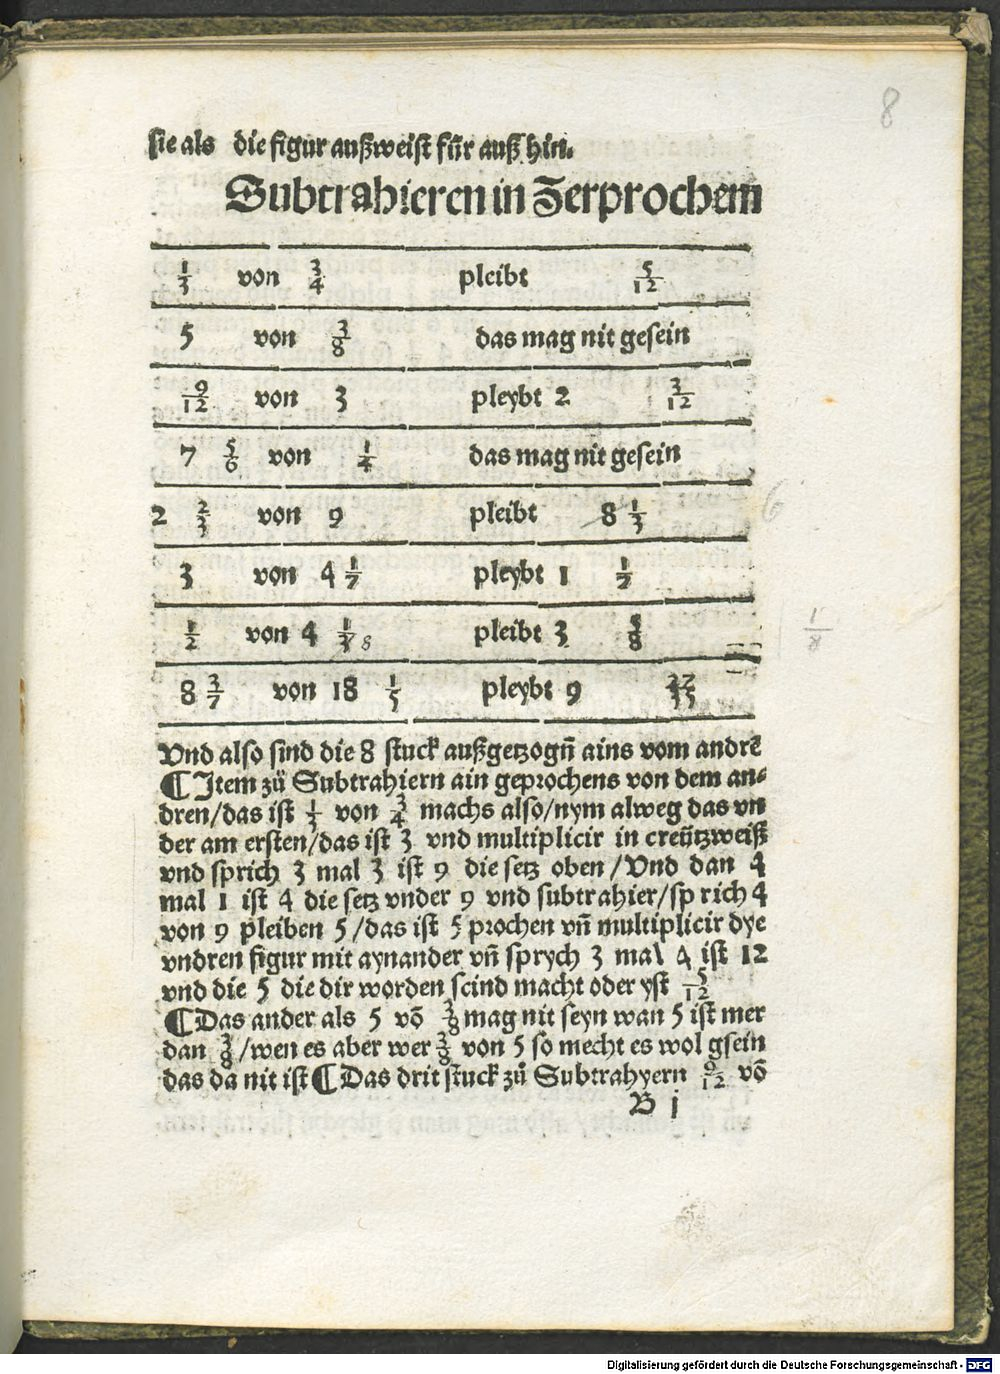 8
sie als die figur außweist für auß hin.
Subtrahieren in Zerprochem
1/3 von 3/4 pleibt 5/12
5 von 3/8 das mag nit gesein
9/12 von 3 pleybt 2 3/12
7 5/6 von 1/4 das mag nit gesein
2 2/3 von 9 pleibt 8 1/3 6
3 von 4 1/7 pleybt 1 1/7
1/2 von 4 1/7 8 pleibt 3 5/8 1/8
8 3/7 von 18 1/5 pleybt 9 27/35
Vnd also sind die 8 stuck außgetzogñ ains vom andrẽ
¶ Item zů Subtrahiern ain geprochens von dem an⸗
dren/das ist 1/3 von 3/4 machs also/nym alweg das vn
der am ersten/das ist 3 vnd multiplicir in creütзweiß
vnd sprich 3 mal 3 ist 9 die setz oben/Vnd dan 4
mal 1 ist 4 die setz vnder 9 vnd subtrahier/sprich 4
von 9 pleiben 5/das ist 5 prochen vñ multiplicir dye
vndren figur mit aynander vñ sprych 3 mal 4 ist 12
vnd die 5 die dir worden seind macht oder yst 5/12
¶ Das ander als 5 võ 3/8 mag nit seyn wan 5 ist mer
dan 3/8/wen es aber wer 3/8 von 5 so mecht es wol gsein
das da nit ist ¶ Das drit stuck zů Subtrahyern 9/12 võ
B j
Digitalisierung gefördert durch die Deutsche Forschungsgemeinschaft - DFG